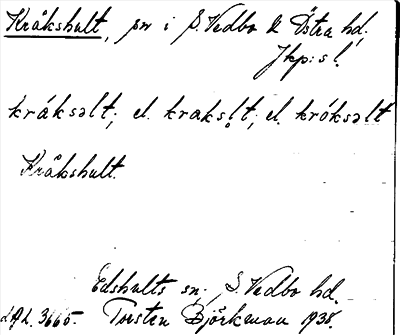 Kråkshult, sn i S. Vedbo & Östra hd.
Jkp:s l.
kråksəlt; el. kraksl̥t; el. króksəlt
Kråkshult.
Edshults sn; S. Vedbo hd.
dAL. 3665. Torsten Björkman 1938.